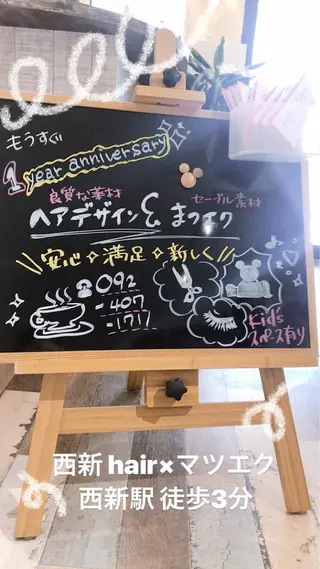 もうすぐ
1 year anniversary
良質な薬材
セーブル素材
ヘアデザイン& まつエク
\\安心✧満足✧新しく//
☎092
-407
-1717
Kids
スペース有り
西新 hair×マツエク
西新駅 徒歩3分